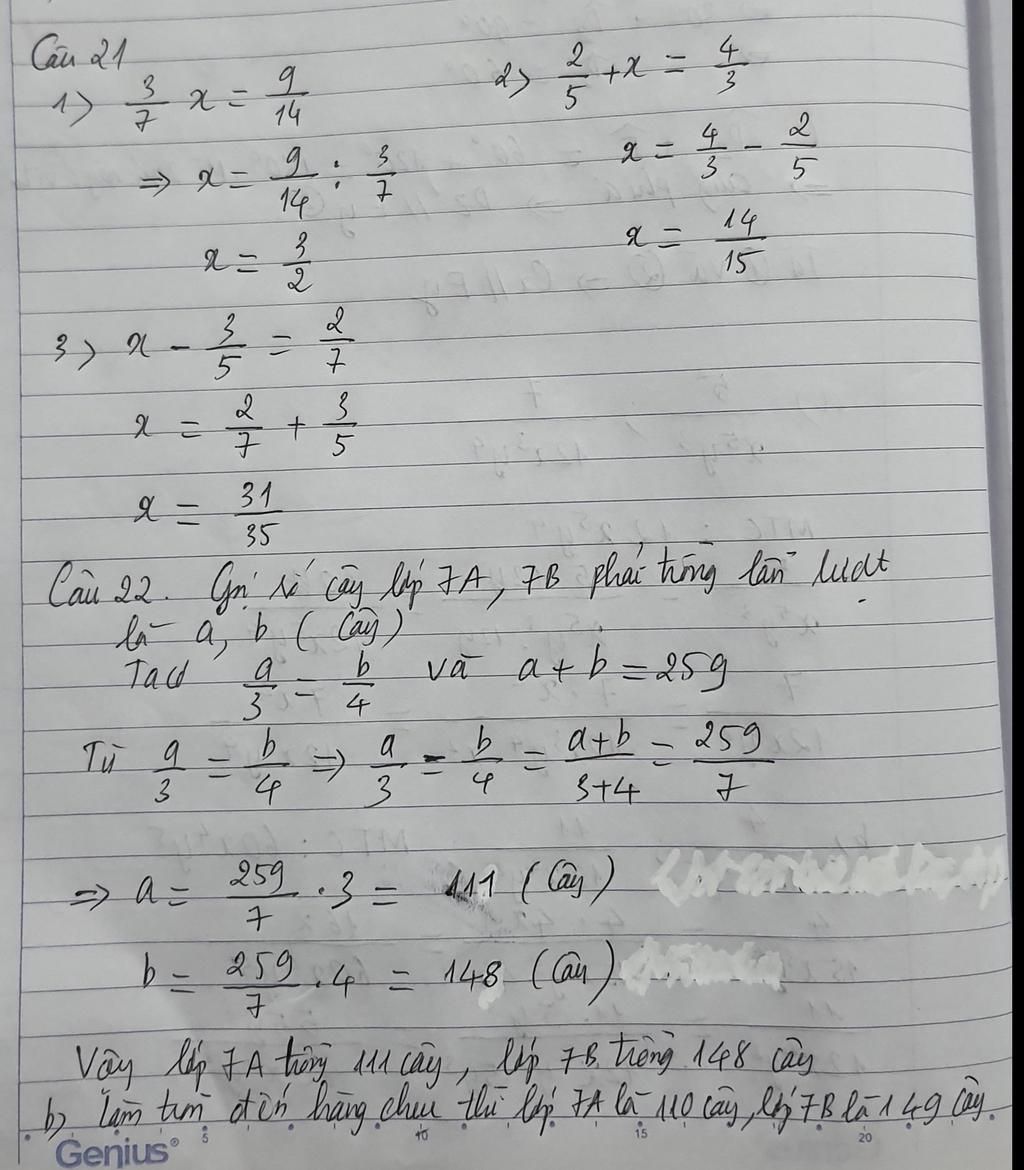 Câu 21
1> 3/7 x = 9/14
2> 2/5 + x = 4/3
=> x = 9/14 : 3/7
x = 4/3 - 2/5
x = 3/2
x = 14/15
3> x - 3/5 = 2/7
x = 2/7 + 3/5
x = 31/35
Câu 22. Gọi số cây lớp 7A, 7B phải trồng lần lượt
là a, b (Cây)
Ta có a/3 = b/4 và a + b = 259
Từ a/3 = b/4 => a/3 = b/4 = a+b/3+4 = 259/7
=> a = 259/7 . 3 = 111 (Cây)
b = 259/7 . 4 = 148 (Cây)
Vậy lớp 7A trồng 111 cây, lớp 7B trồng 148 cây
b) Làm tròn đến hàng chục thì lớp 7A là 110 cây, lớp 7B là 149 cây.
Genius® 5 10 15 20